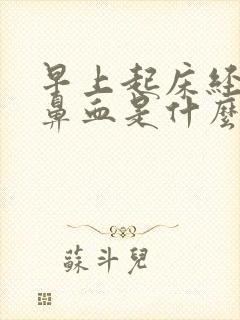 早上起床经
鼻血是什麼
蘇斗兒